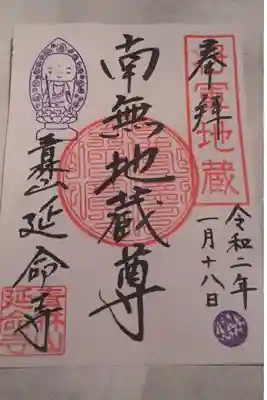 奉拝
地蔵
令和二年
一月十八日
南無地蔵尊
山延命寺
延命寺